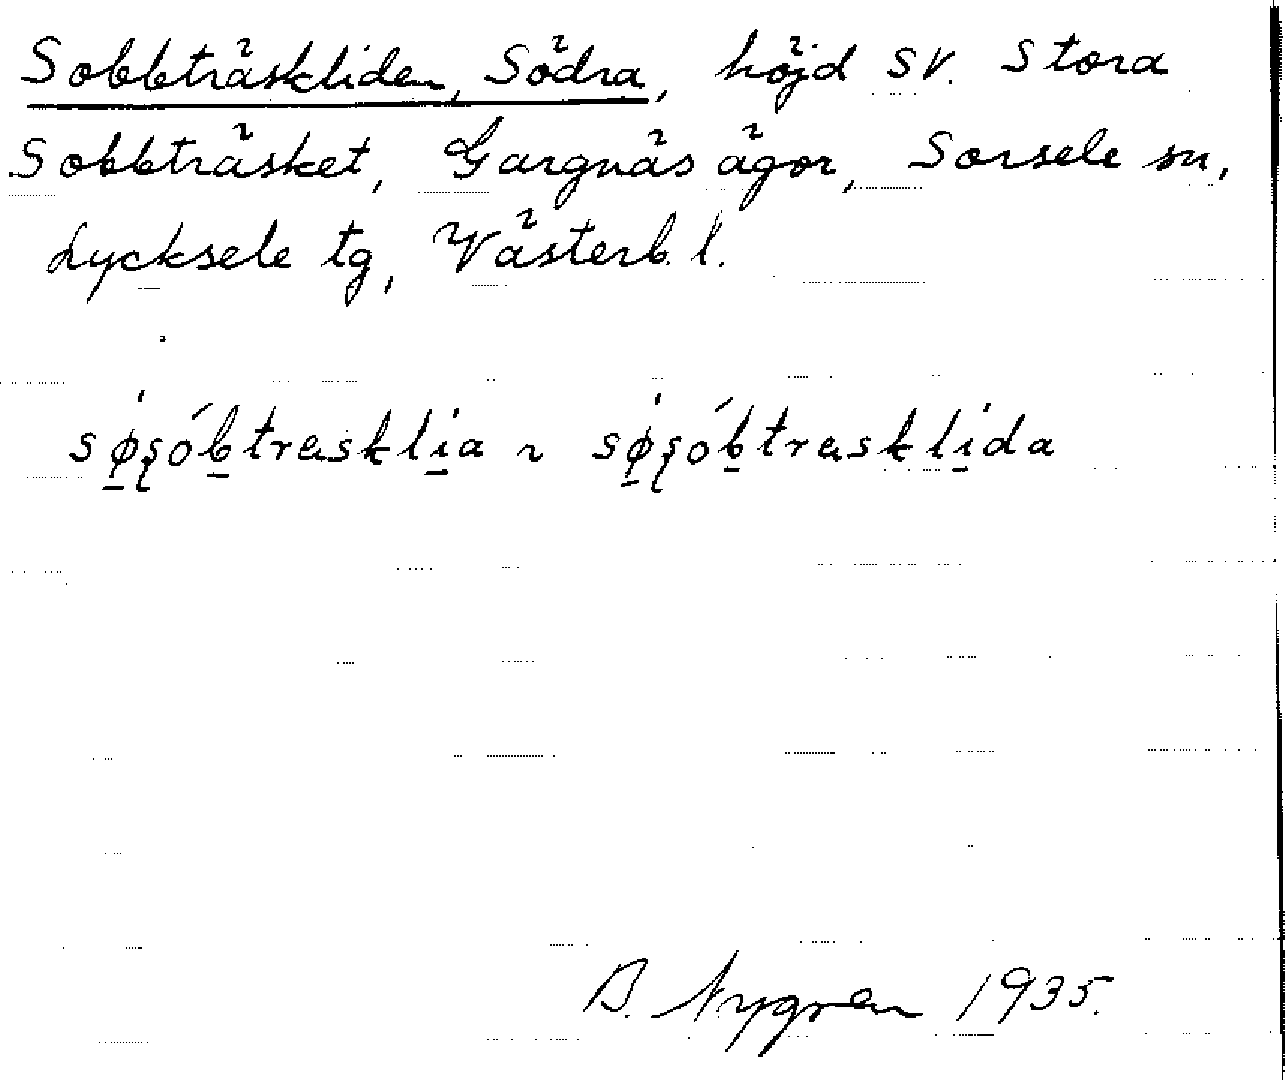 Sobbträskliden, Södra, höjd SV. Stora
Sobbträsket, Gargnäs ägor, Sorsele sn,
Lycksele tg, Västerb. l.
sø̱ʂóḇtraskli̱a ~ sø̱ʂóḇtraskli̱da
B. Nygren 1935.